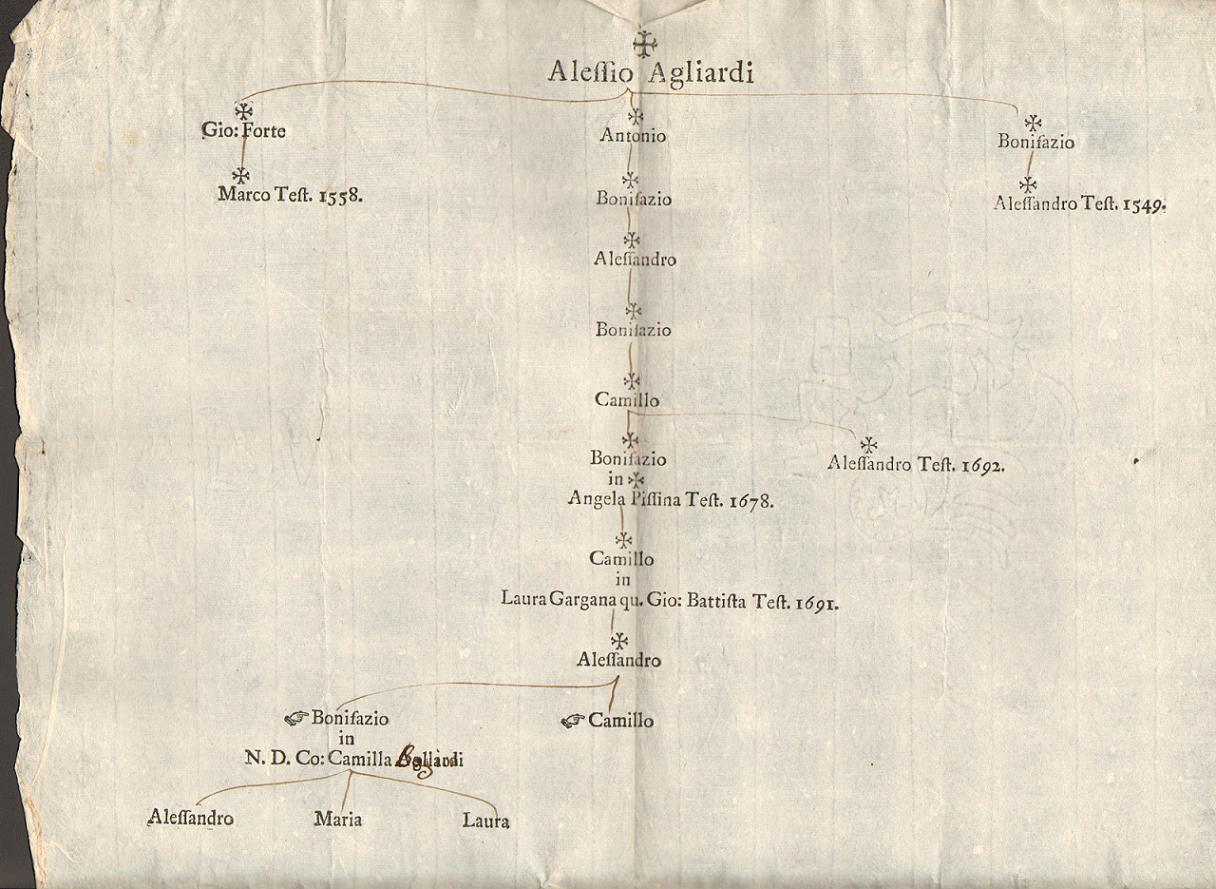 Aleſſio Agliardi
Gio: Forte
Antonio
Bonifazio
Marco Teſt. 1558.
Bonifazio
Aleſſandro Teſt. 1549.
Aleſſandro
Bonifazio
Camillo
Bonifazio
Aleſſandro Teſt. 1692.
in
Angela Piſſina Teſt. 1678.
Camillo
in
Laura Gargana qu. Gio: Battiſta Teſt. 1691.
Aleſſandro
Bonifazio
Camillo
in
N. D. Co: Camilla
Aleſſandro
Maria
Laura